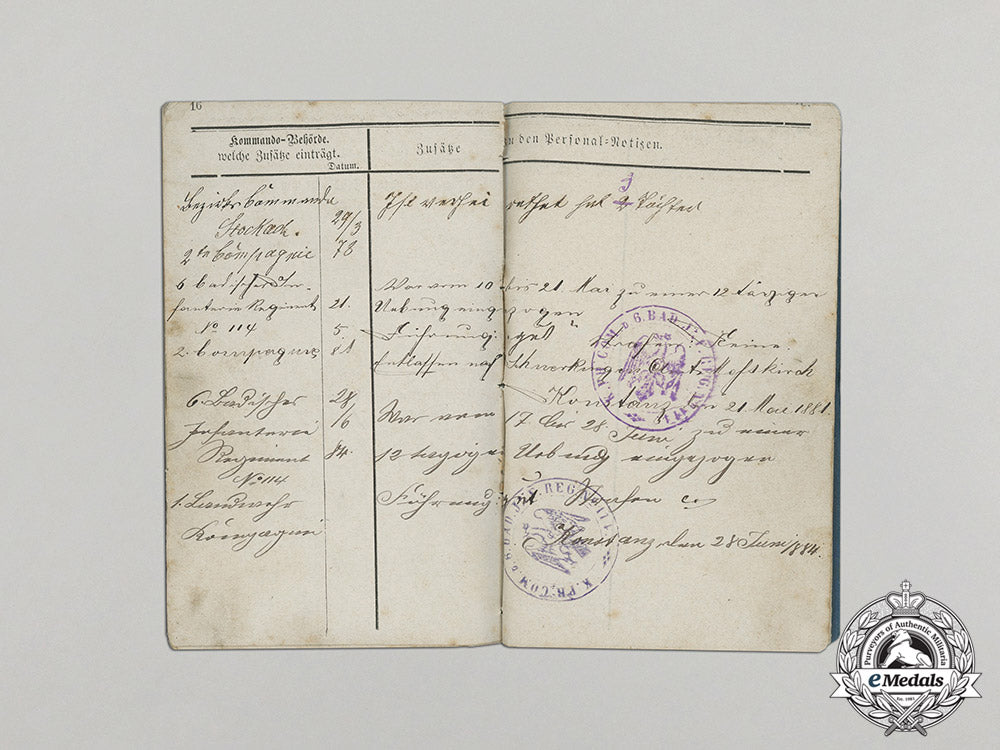 16
Kommando-Behörde.
welche Zusätze einträgt.
Datum.
Zusätze zu den Personal-Notizen.
Bezirks Commando
Stockach.
29/3
78
Ist verheirathet hat 2 3 Töchter
2te Compagnie
6 badisches In-
fanterie Regiment
No 114
2. Compagnie
21.
5.
81
War vom 10 bis 21. Mai zu einer 12 tägigen
Uebung eingezogen
Führung: gut Strafen: Keine
Entlassen nach Meßkirch
Konstanz den 21 Mai 1881.
6. Badisches
Infanterie
Regiment
No 114
1. Landwehr
Kompagnie
28/6
84.
War vom 17 bis 28. Juni zu einer
12 tägigen Uebung eingezogen
Führung: gut Strafen
Konstanz den 28 Juni 1884.
K. PR. COM. D. 6. BAD. INF. REG. № 114
K. PR. COM. D. 6. BAD. INF. REG. № 114
Purveyors of Authentic Militaria
eMedals
Est. 1981